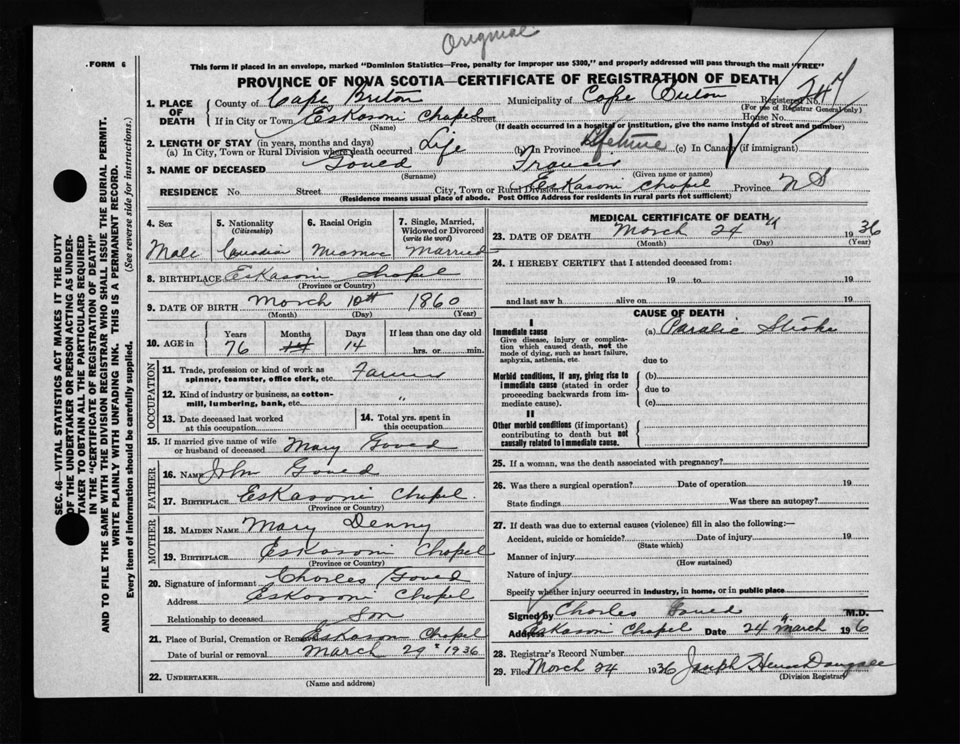 Original
FORM 6
This form if placed in an envelope, marked "Dominion Statistics—Free, penalty for improper use $300," and properly addressed will pass through the mail "FREE"
PROVINCE OF NOVA SCOTIA—CERTIFICATE OF REGISTRATION OF DEATH
1. PLACE OF DEATH
County of Cape Breton Municipality of Cape Breton Registered No. 247
(For use of Registrar General only)
If in City or Town Eskasoni Chapel Street House No.
(Name) (If death occurred in a hospital or institution, give the name instead of street and number)
2. LENGTH OF STAY (in years, months and days)
(a) In City, Town or Rural Division where death occurred Life (b) In Province Lifetime (c) In Canada (if immigrant)
3. NAME OF DECEASED Goued Francis
(Surname) (Given name or names)
RESIDENCE No. Street City, Town or Rural Division Eskasoni Chapel Province N S
(Residence means usual place of abode. Post Office Address for residents in rural parts not sufficient)
4. Sex 5. Nationality (Citizenship) 6. Racial Origin 7. Single, Married, Widowed or Divorced (write the word)
Male Canadian Micmac Married
8. BIRTHPLACE Eskasoni Chapel
(Province or Country)
9. DATE OF BIRTH March 10th 1860
(Month) (Day) (Year)
10. AGE in Years Months Days If less than one day old
76 14 hrs. or min.
OCCUPATION
11. Trade, profession or kind of work as spinner, teamster, office clerk, etc. Farmer
12. Kind of industry or business, as cotton-mill, lumbering, bank, etc. "
13. Date deceased last worked at this occupation
14. Total yrs. spent in this occupation
15. If married give name of wife or husband of deceased Mary Goued
FATHER
16. NAME John Goued
17. BIRTHPLACE Eskasoni Chapel
(Province or Country)
MOTHER
18. MAIDEN NAME Mary Denny
19. BIRTHPLACE Eskasoni Chapel
(Province or Country)
20. Signature of informant Charles Goued
Address Eskasoni Chapel
Relationship to deceased Son
21. Place of Burial, Cremation or Removal Eskasoni Chapel
Date of burial or removal March 29th 1936
22. UNDERTAKER
(Name and address)
MEDICAL CERTIFICATE OF DEATH
23. DATE OF DEATH March 24 " 1936
(Month) (Day) (Year)
24. I HEREBY CERTIFY that I attended deceased from:
19 to 19
and last saw h alive on 19
CAUSE OF DEATH
I
Immediate cause (a) Paralic Stroke
Give disease, injury or complication which caused death, not the mode of dying, such as heart failure, asphyxia, asthenia, etc.
due to
Morbid conditions, if any, giving rise to immediate cause (stated in order proceeding backwards from immediate cause).
(b)
due to
(c)
II
Other morbid conditions (if important) contributing to death but not causally related to immediate cause.
25. If a woman, was the death associated with pregnancy?
26. Was there a surgical operation? Date of operation 19
State findings Was there an autopsy?
27. If death was due to external causes (violence) fill in also the following:—
Accident, suicide or homicide? Date of injury 19
(State which)
Manner of injury
(How sustained)
Nature of injury
Specify whether injury occurred in industry, in home, or in public place
Signed by Charles Goued M.D.
Address Eskasoni Chapel Date 24 " March 196
28. Registrar's Record Number
29. Filed March 24 1936 Joseph Dougall
(Division Registrar)
SEC. 46—VITAL STATISTICS ACT MAKES IT THE DUTY
OF THE UNDERTAKER OR PERSON ACTING AS UNDER-
TAKER TO OBTAIN ALL THE PARTICULARS REQUIRED
IN THE "CERTIFICATE OF REGISTRATION OF DEATH"
AND TO FILE THE SAME WITH THE DIVISION REGISTRAR WHO SHALL ISSUE THE BURIAL PERMIT.
WRITE PLAINLY WITH UNFADING INK. THIS IS A PERMANENT RECORD.
Every item of information should be carefully supplied. (See reverse side for instructions.)